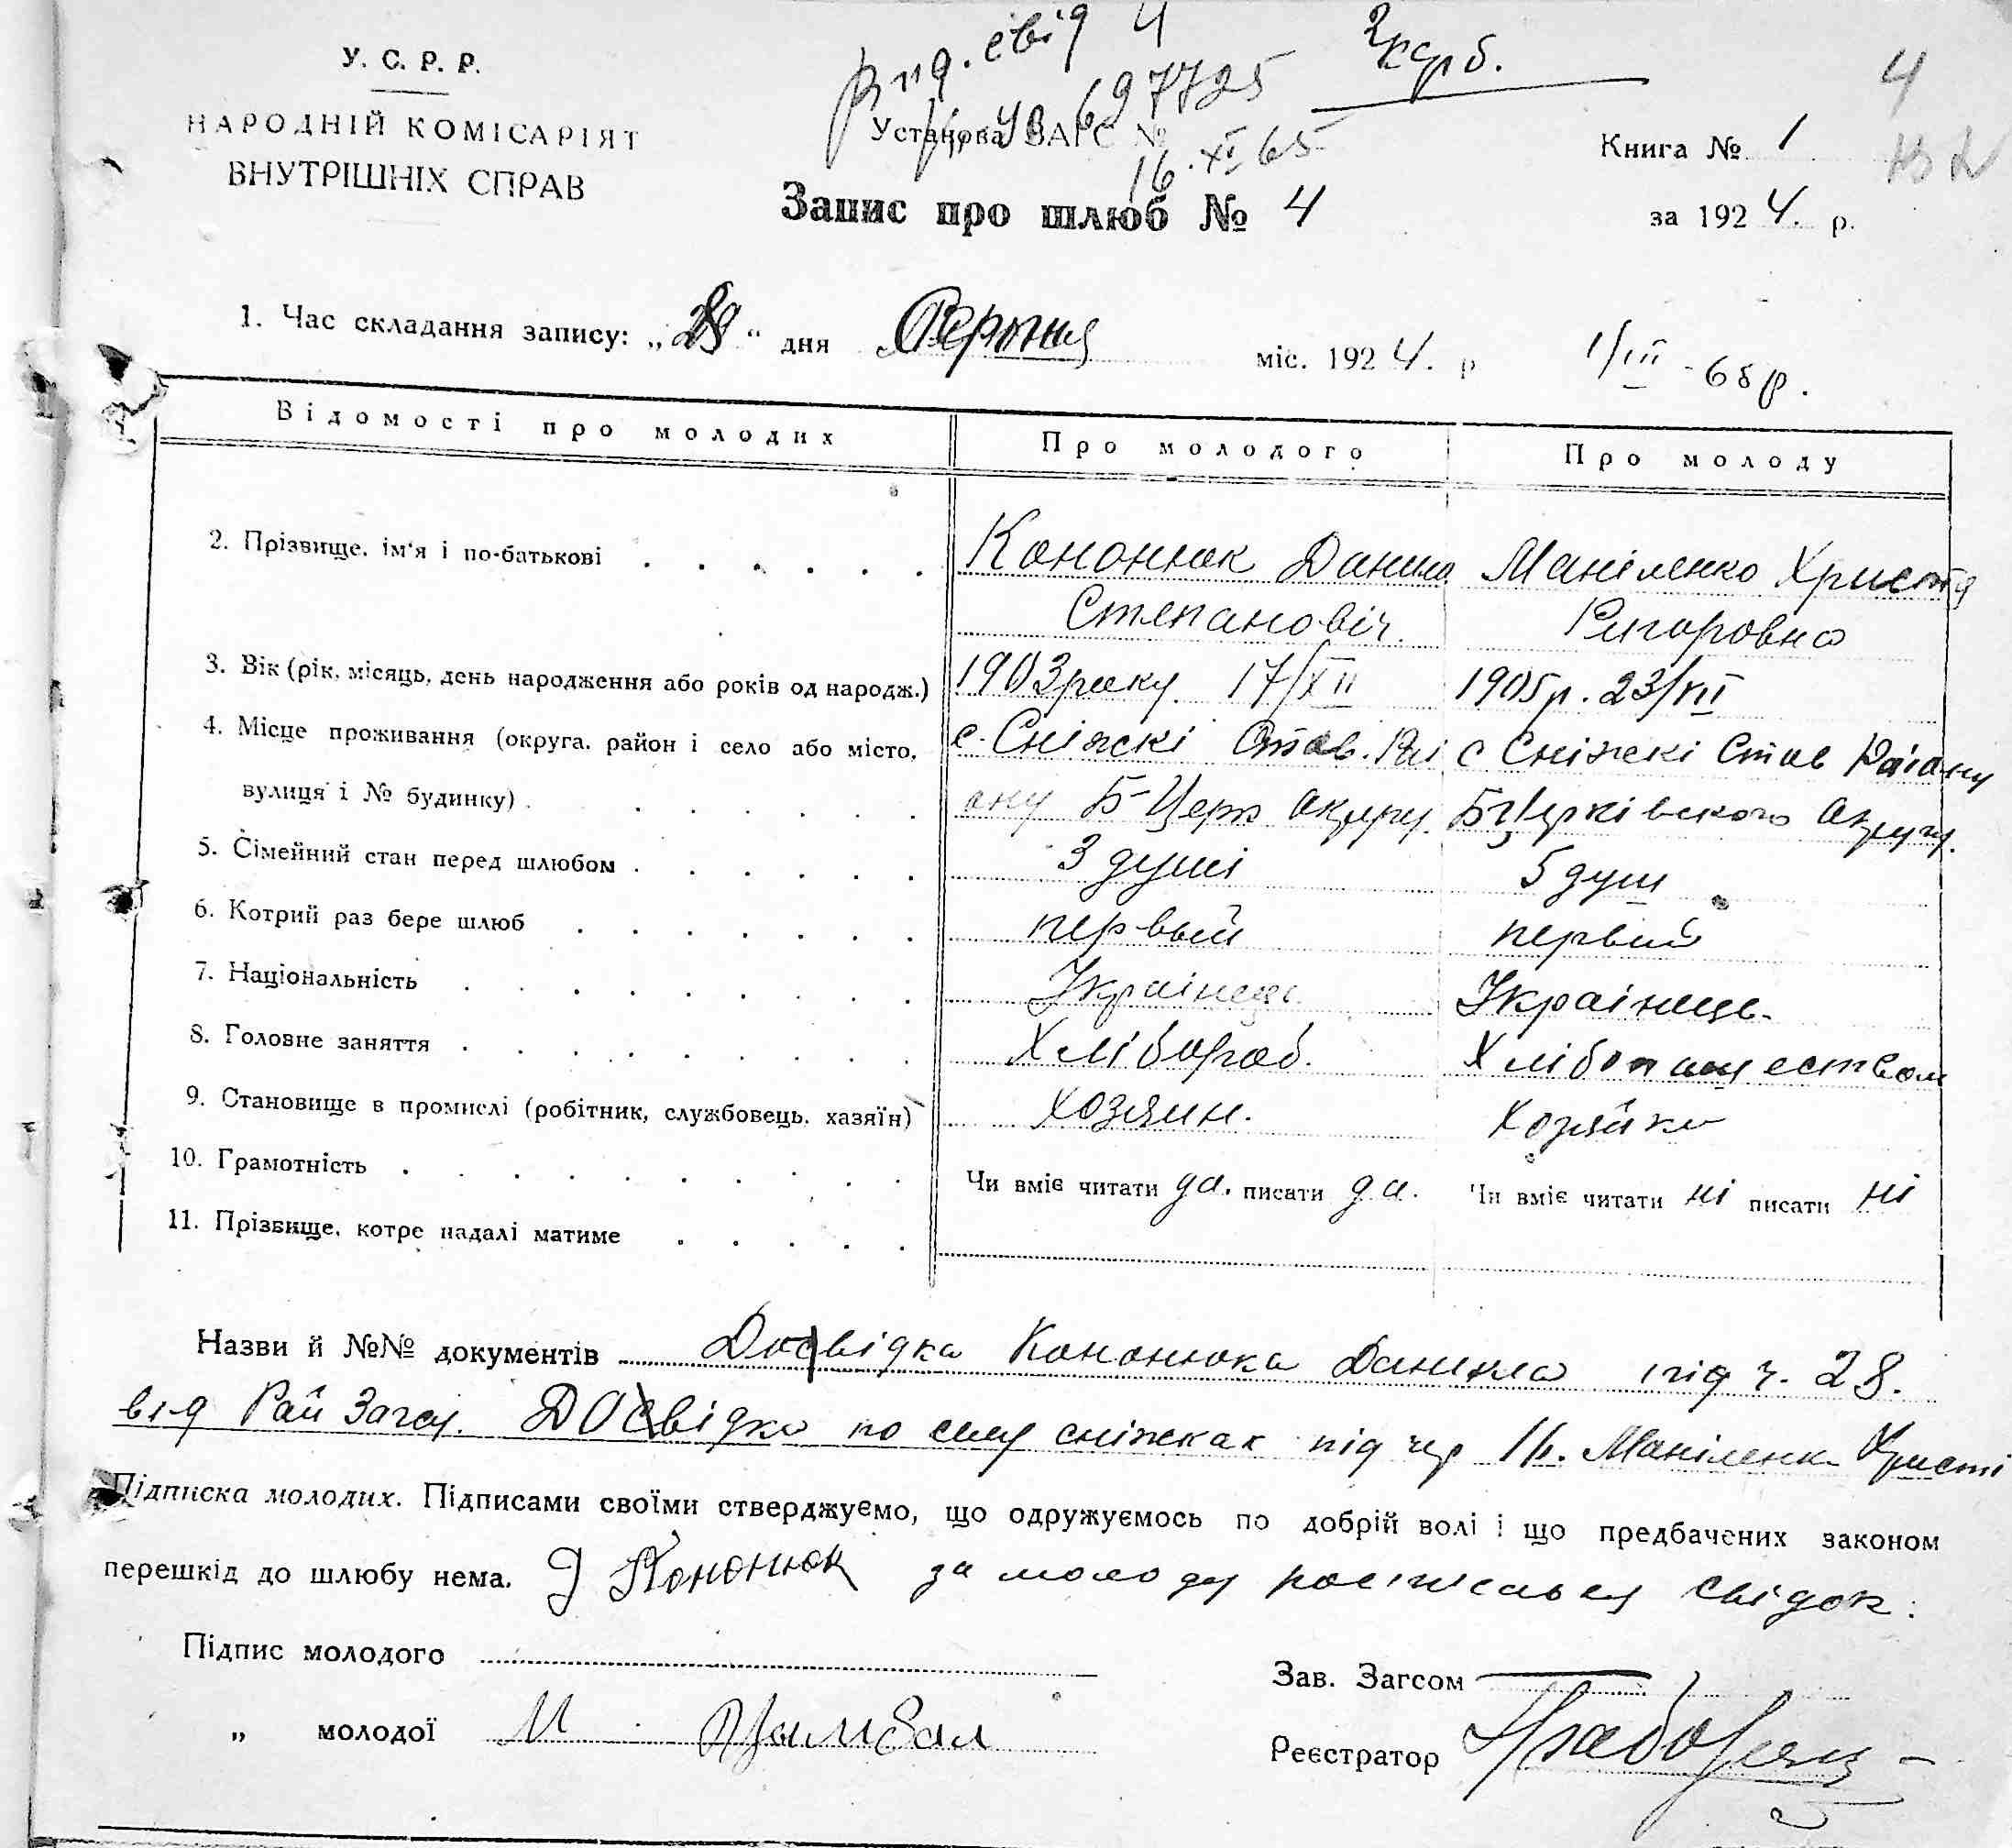 У. С. Р. Р.
НАРОДНІЙ КОМІСАРІЯТ
ВНУТРІШНІХ СПРАВ
2 карб.
4
697725
Установа ЗАГС №
16. XI 65
Книга № 1
Запис про шлюб № 4
за 1924. р.
1. Час складання запису: „28“ дня Серпня міс. 1924. р
1/III - 68 р.
Відомості про молодих
Про молодого
Про молоду
2. Прізвище, ім'я і по-батькові
Кононюк Данило
Степановіч
Маніленко Христя
Григоровна
3. Вік (рік, місяць, день народження або років од народж.)
1903 року 17/XII
1905 р. 23/VII
4. Місце проживання (округа, район і село або місто,
вулиця і № будинку)
с. Сніжкі Став. Рай
ону Б-Церк округу.
с Сніжкі Став Району
БЦерківського округу.
5. Сімейний стан перед шлюбом
3 душі
5 душ
6. Котрий раз бере шлюб
первый
первий
7. Національність
Українець
Українець.
8. Головне заняття
Хлібороб.
Хлібопашеством
9. Становище в промислі (робітник, службовець, хазяїн)
хозяин.
хозяйка
10. Грамотність
Чи вміє читати да. писати да.
Чи вміє читати ні писати ні
11. Прізвище, котре надалі матиме
Назви й №№ документів Досвідка Кононюка Данила під ч. 28.
від Рай Загсу. Досвідка по селу сніжках під чр 16. Маніленк Христі
Підписка молодих. Підписами своїми стверджуємо, що одружуємось по добрій волі і що предбачених законом
перешкід до шлюбу нема. Д Кононюк за молоду росписався свідок:
Підпис молодого
Зав. Загсом
„ молодої М. Цымбал
Реєстратор